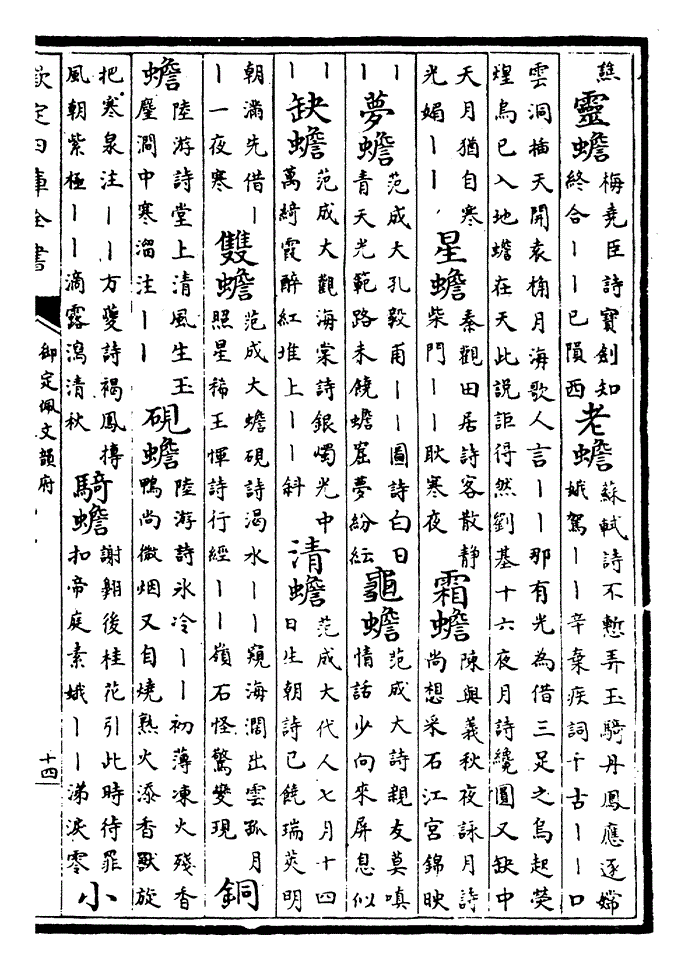 靈蟾梅堯臣詩寶劍知終合丨丨已隕西老蟾蘇軾詩不慙弄玉騎丹鳳應逐嫦娥駕丨丨辛棄疾詞千古丨丨口
雲洞插天開袁桷月海歌人言丨丨那有光為借三足之烏起熒
煌烏已入地蟾在天此説詎得然劉基十六夜月詩纔圓又缺中
天月猶自寒光媚丨丨星蟾秦觀田居詩客散靜柴門丨丨耿寒夜霜蟾陳與義秋夜詠月詩尚想采石江宮錦映
丨丨夢蟾范成大孔毅甫丨丨圖詩白日青天光範路未饒蟾窟夢紛紜龜蟾范成大詩親友莫嗔情話少向來屏息似
丨丨缺蟾范成大觀海棠詩銀燭光中萬綺霞醉紅堆上丨丨斜清蟾范成大代人七月十四日生朝詩已饒瑞莢明
朝滿先借丨丨一夜寒雙蟾范成大蟾硯詩渴水丨丨窺海濶出雲孤月照星稀王惲詩行經丨丨嶺石怪驚變現銅
蟾陸游詩堂上清風生玉麈澗中寒溜注丨丨硯蟾陸游詩氷冷丨丨初薄凍火殘香鴨尚微烟又自燒熟火添香獸旋
把寒泉注丨丨方夔詩褐鳳摶風朝紫極丨丨滴露瀉清秋騎蟾謝翱後桂花引此時待罪扣帝庭素娥丨丨涕淚零小
欽定四庫全書
御定佩文韻府
十四